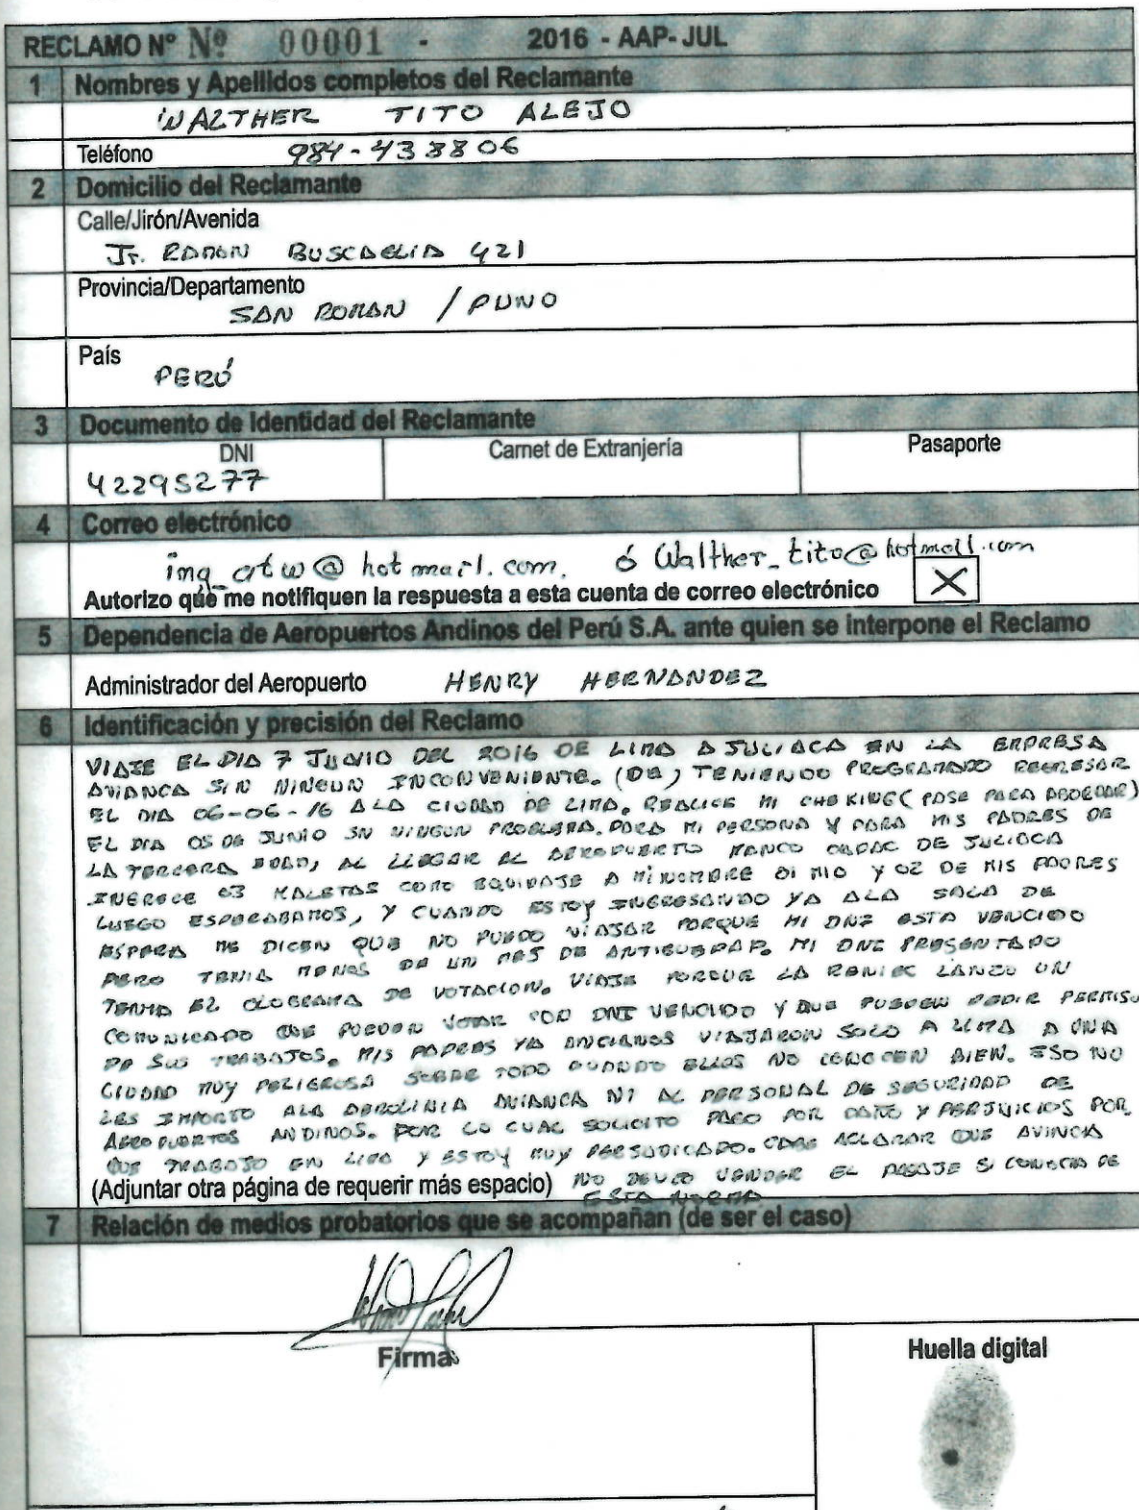 RECLAMO Nº Nº 00001 - 2016 - AAP- JUL
1 Nombres y Apellidos completos del Reclamante
WALTHER TITO ALEJO
Teléfono 984-438806
2 Domicilio del Reclamante
Calle/Jirón/Avenida
Jr. RAMON 421
Provincia/Departamento
SAN ROMAN / PUNO
País
PERÚ
3 Documento de Identidad del Reclamante
DNI Carnet de Extranjería Pasaporte
42295277
4 Correo electrónico
ing_atw@hotmail.com. ó Walther_tito@hotmail.com
Autorizo que me notifiquen la respuesta a esta cuenta de correo electrónico X
5 Dependencia de Aeropuertos Andinos del Perú S.A. ante quien se interpone el Reclamo
Administrador del Aeropuerto HENRY HERNANDEZ
6 Identificación y precisión del Reclamo
VIAJE EL DIA 7 JUNIO DEL 2016 DE LIMA A JULIACA EN LA EMPRESA
AVIANCA SIN NINGUN INCONVENIENTE. (DE) TENIENDO PROGRAMADO REGRESAR
EL DIA 06-06-16 A LA CIUDAD DE LIMA. REALICE MI CHEKING (PASE PARA ABORDAR)
EL DIA 05 DE JUNIO SN NINGUN PROBLEMA. PARA MI PERSONA Y PARA MIS PADRES DE
LA TERCERA EDAD, AL LLEGAR AL AEROPUERTO MANCO CAPAC DE JULIACA
INGRESE 03 MALETAS COMO EQUIPAJE A MI NOMBRE 01 MIO Y 02 DE MIS PADRES
LUEGO ESPERABAMOS, Y CUANDO ESTOY INGRESANDO YA ALA SALA DE
ESPERA ME DICEN QUE NO PUEDO VIAJAR PORQUE MI DNI ESTA VENCIDO
PERO TENIA MENOS DE UN MES DE MI DNI PRESENTADO
TENIA EL DE VOTACION. VIAJE PORQUE LA RENIEC LANZO UN
COMUNICADO QUE PUEDEN VOTAR CON DNI VENCIDO Y QUE PUEDEN PEDIR PERMISO
DE SUS TRABAJOS. MIS PADRES YA ANCIANOS VIAJARON SOLO A LIMA A UNA
CIUDAD MUY PELIGROSA SOBRE TODO CUANDO ELLOS NO CONOCEN BIEN. ESO NO
LES IMPORTO ALA AEROLINIA AVIANCA NI AL PERSONAL DE SEGURIDAD DE
AEROPUERTOS ANDINOS. POR LO CUAL SOLICITO PAGO POR DAÑO Y PERJUICIOS POR
QUE TRABAJO EN LIMA Y ESTOY MUY PERJUDICADO. CABE ACLARAR QUE AVINCA
(Adjuntar otra página de requerir más espacio) NO VENDER EL PASAJE SI CONOCIA DE
ESTA NORMA
7 Relación de medios probatorios que se acompañan (de ser el caso)
Firma
Huella digital